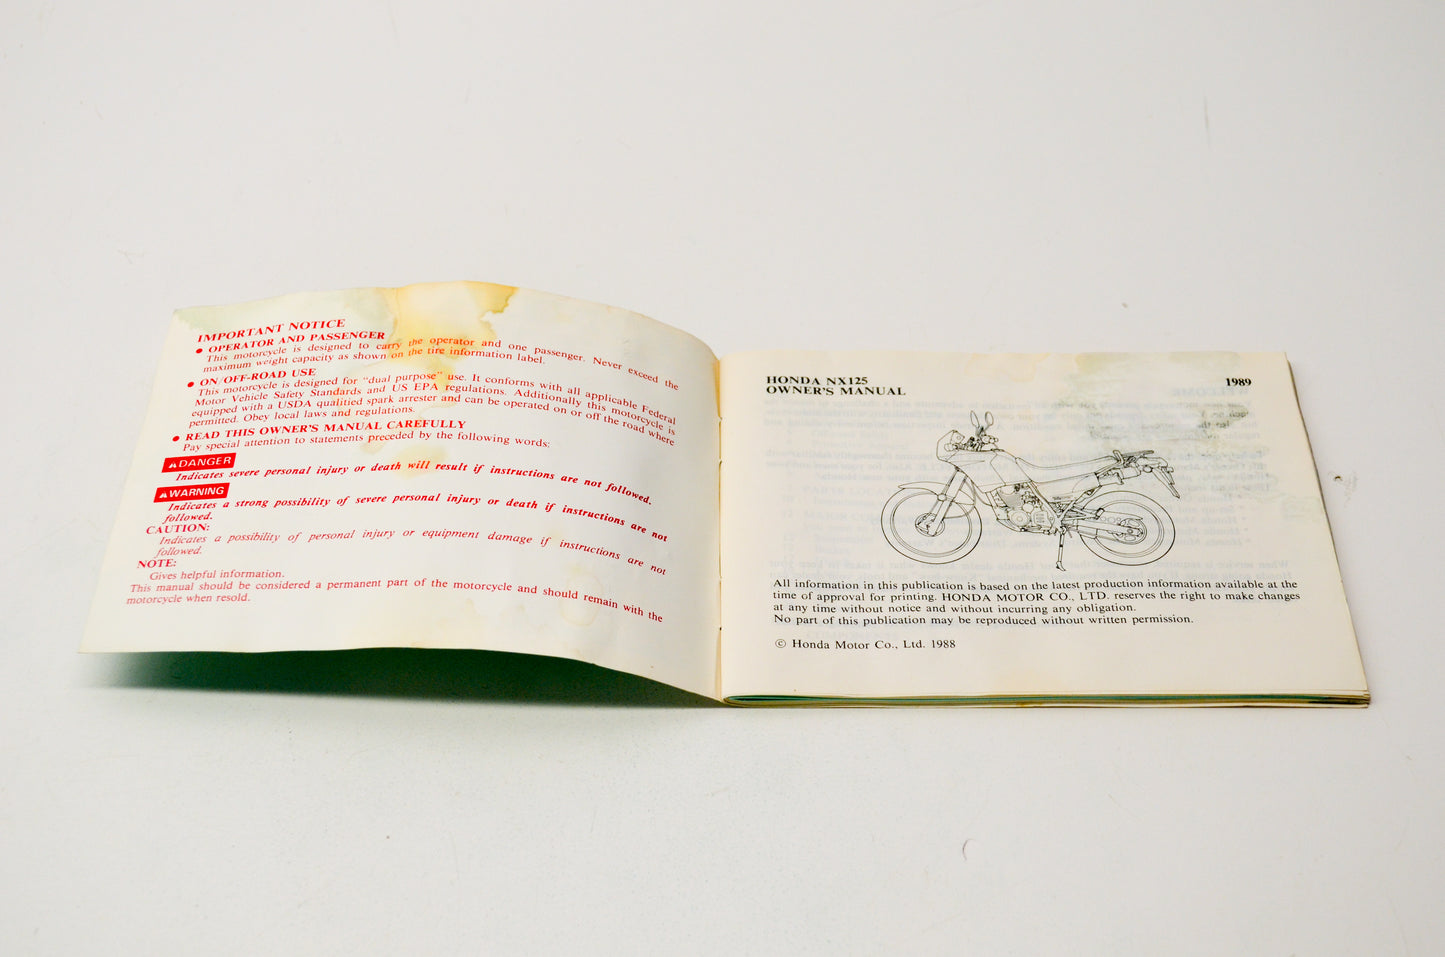 IMPORTANT NOTICE
● OPERATOR AND PASSENGER
This motorcycle is designed to carry the operator and one passenger. Never exceed the
maximum weight capacity as shown on the tire information label.
● ON/OFF-ROAD USE
This motorcycle is designed for "dual purpose" use. It conforms with all applicable Federal
Motor Vehicle Safety Standards and US EPA regulations. Additionally this motorcycle is
equipped with a USDA qualitied spark arrester and can be operated on or off the road where
permitted. Obey local laws and regulations.
● READ THIS OWNER'S MANUAL CAREFULLY
Pay special attention to statements preceded by the following words:
⚠DANGER
Indicates severe personal injury or death will result if instructions are not followed.
⚠WARNING
Indicates a strong possibility of severe personal injury or death if instructions are not
followed.
CAUTION:
Indicates a possibility of personal injury or equipment damage if instructions are not
followed.
NOTE:
Gives helpful information.
This manual should be considered a permanent part of the motorcycle and should remain with the
motorcycle when resold.
HONDA NX125
OWNER'S MANUAL
1989
All information in this publication is based on the latest production information available at the
time of approval for printing. HONDA MOTOR CO., LTD. reserves the right to make changes
at any time without notice and without incurring any obligation.
No part of this publication may be reproduced without written permission.
© Honda Motor Co., Ltd. 1988